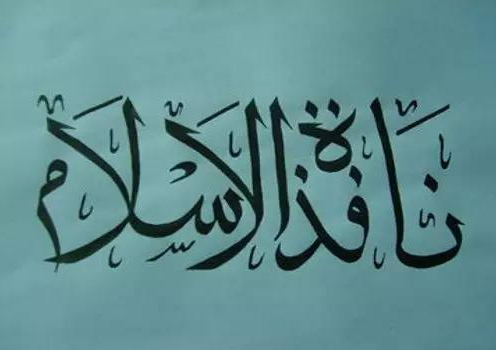 نافذة الإسلام